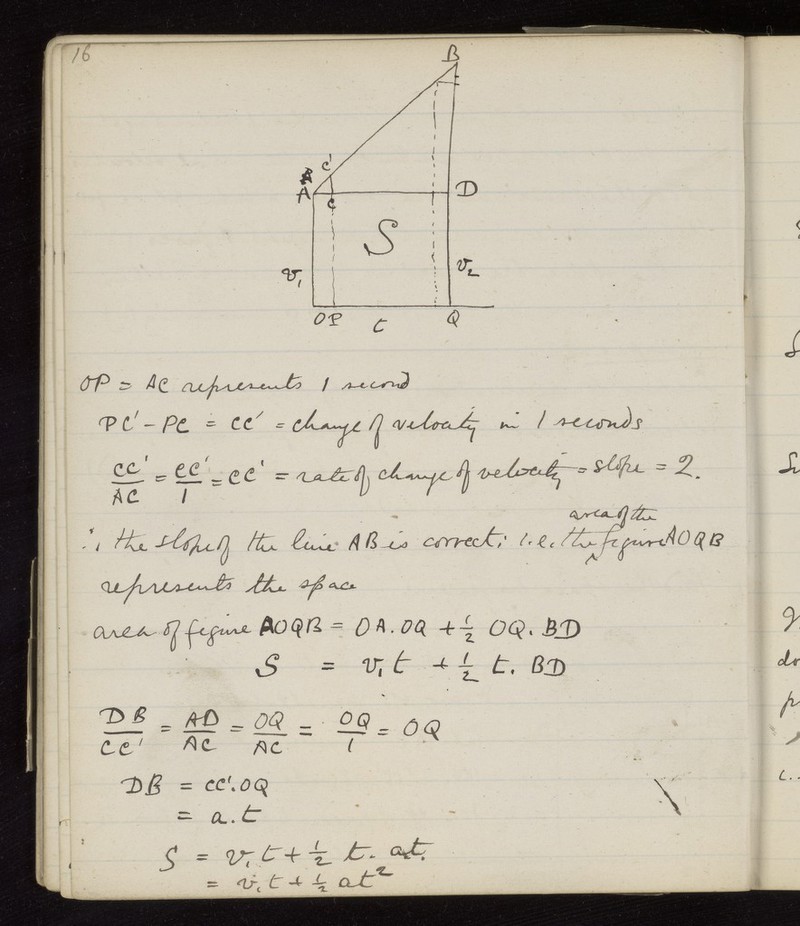 16
B
C'
A
A
C
D
S
v₁
v₂
O P
t
Q
OP = AC represents 1 second
PC' - PC = CC' = change of velocity in 1 seconds
CC'/AC = CC'/1 = CC' = rate of change of velocity = slope = 2.
∴ the slope of the line AB is correct; i.e. the area of the figure AOQB
represents the space
area of figure AOQB = OA.OQ + ½ OQ. BD
S = v₁t + ½ t. BD
DB/CC' = AD/AC = OQ/AC = OQ/1 = OQ
DB = CC'.OQ
= a.t
S = v₁t + ½ t. at.
= v₁t + ½ at²